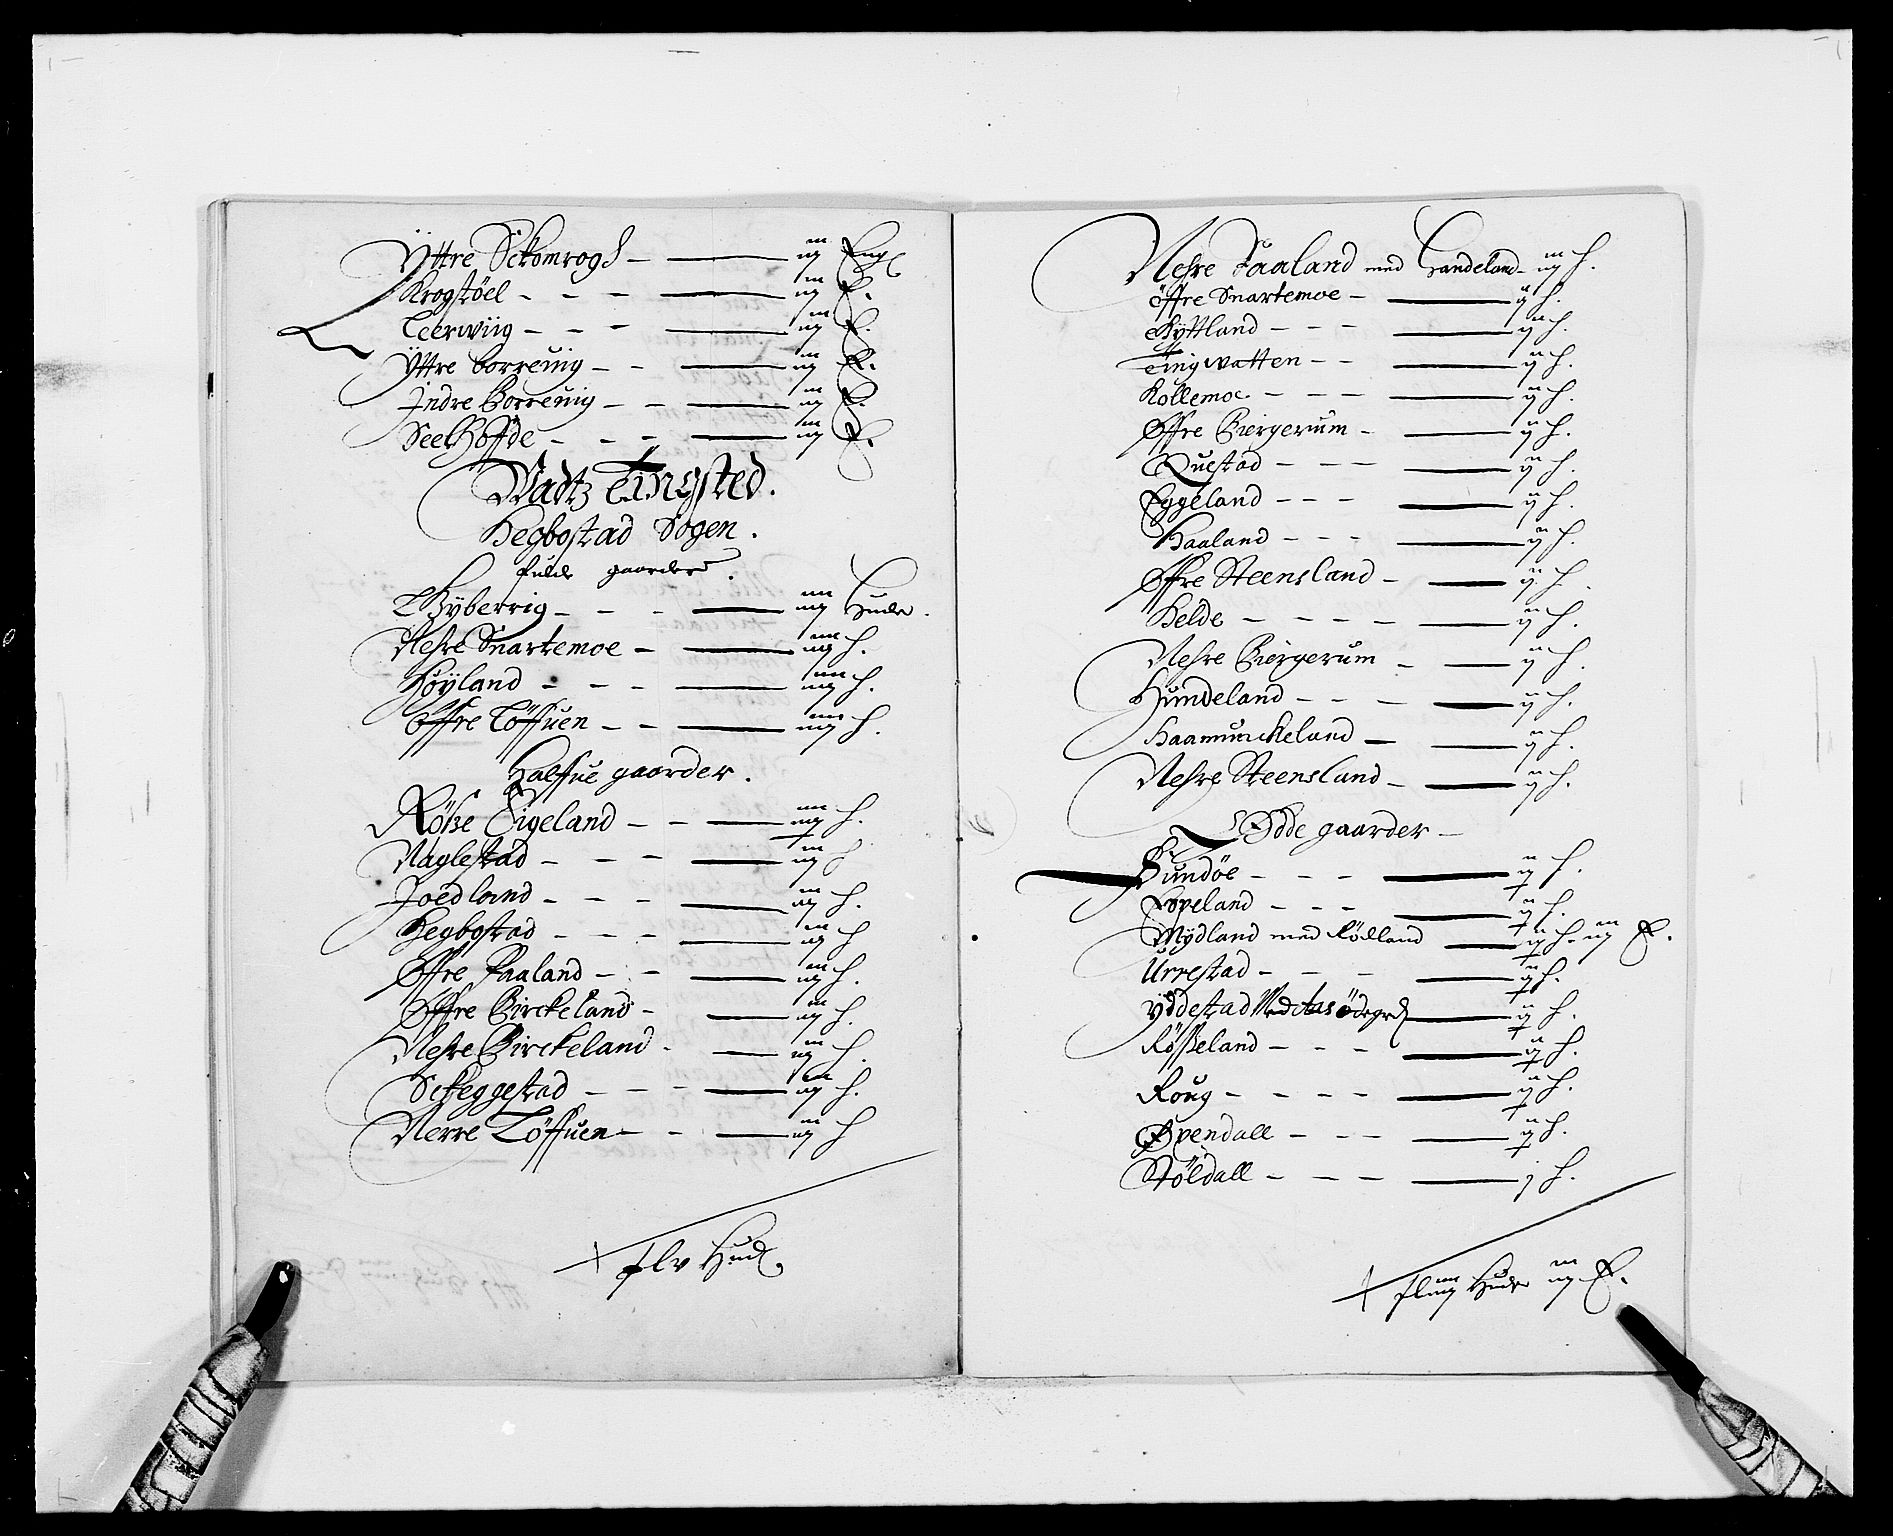 Yttre Sckomrogh — iij Eng:
Krogstöel — iij E.
Leerwiig — iij E.
Yttre Borreuig — iij E.
Indre Borreuig — iij E.
Seelhoffde — iij E.
Wadtz Tingsted.
Hegbostad Sogen.
fulde gaarder.
Byberrig — iiij Huder.
Nehre Snartemoe — iiij h.
Höyland — iiij h.
Öffre Löffuen — iiij h.
Halffue gaarder.
Eigeland — h.
Naglestad — iij h
Joedland — iij h.
Hegbostad — iij h
Øffre Faaland — iij h.
Øffre Birckeland — iij h.
Nehre Birckeland — iij h.
Sckeggestad — iij h.
Nerre Löffuen — iij h
Hud
Nehre Faaland med Handeland — iij h.
öffre Snartemoe — ij h.
Gyttland — ij h.
Tingwatten — ij h.
Kollemoe — ij h.
Øffre Biergerum — ij h.
Questad — ij h.
Eggeland — ij h.
Haaland — ij h.
Øffre Steensland — ij h.
Helde — ij h.
Nehre Biergerum — ij h.
Hundeland — ij h.
Haamunckeland — ij h.
Nehre Steensland — ij h.
Ødde gaarder —
Sundöe — ij h.
Eopeland — ij h.
Mydland med — ij h. iij E.
Urrestad — ij h.
Yddestad Med Aas ödegrd — ij h.
Rösseland — ij h.
Roug — ij h.
Øpendall — ij h.
Stöldall — j h.
Hude iij E.